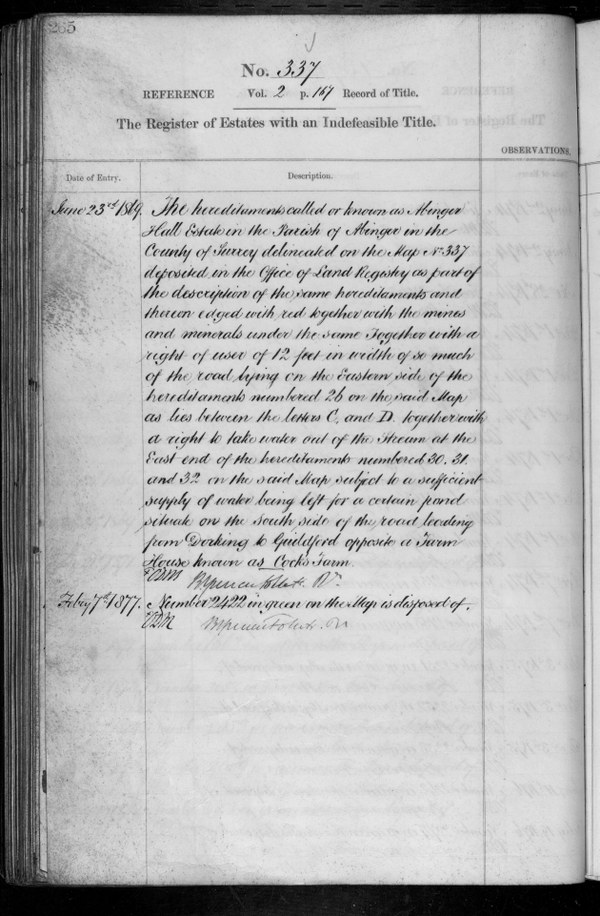 265
No. 337
REFERENCE Vol. 2 p. 167 Record of Title.
The Register of Estates with an Indefeasible Title.
OBSERVATIONS.
Date of Entry. Description.
June 23rd 1869. The hereditaments called or known as Abinger
Hall Estate in the Parish of Abinger in the
County of Surrey delineated on the Map No 337
deposited in the Office of Land Registry as part of
the description of the same hereditaments and
thereon edged with red together with the mines
and minerals under the same Together with a
right of user of 12 feet in width of so much
of the road lying on the Eastern side of the
hereditaments numbered 26 on the said Map
as lies between the letters C. and D. together with
a right to take water out of the Stream at the
East end of the hereditaments numbered 30. 31.
and 32 on the said Map subject to a sufficient
supply of water being left for a certain pond
situate on the South side of the road leading
from Dorking to Guildford opposite a Farm
House known as Cocks Farm.
Feby 7th 1877. Number 2422 in green on the Map is disposed of.